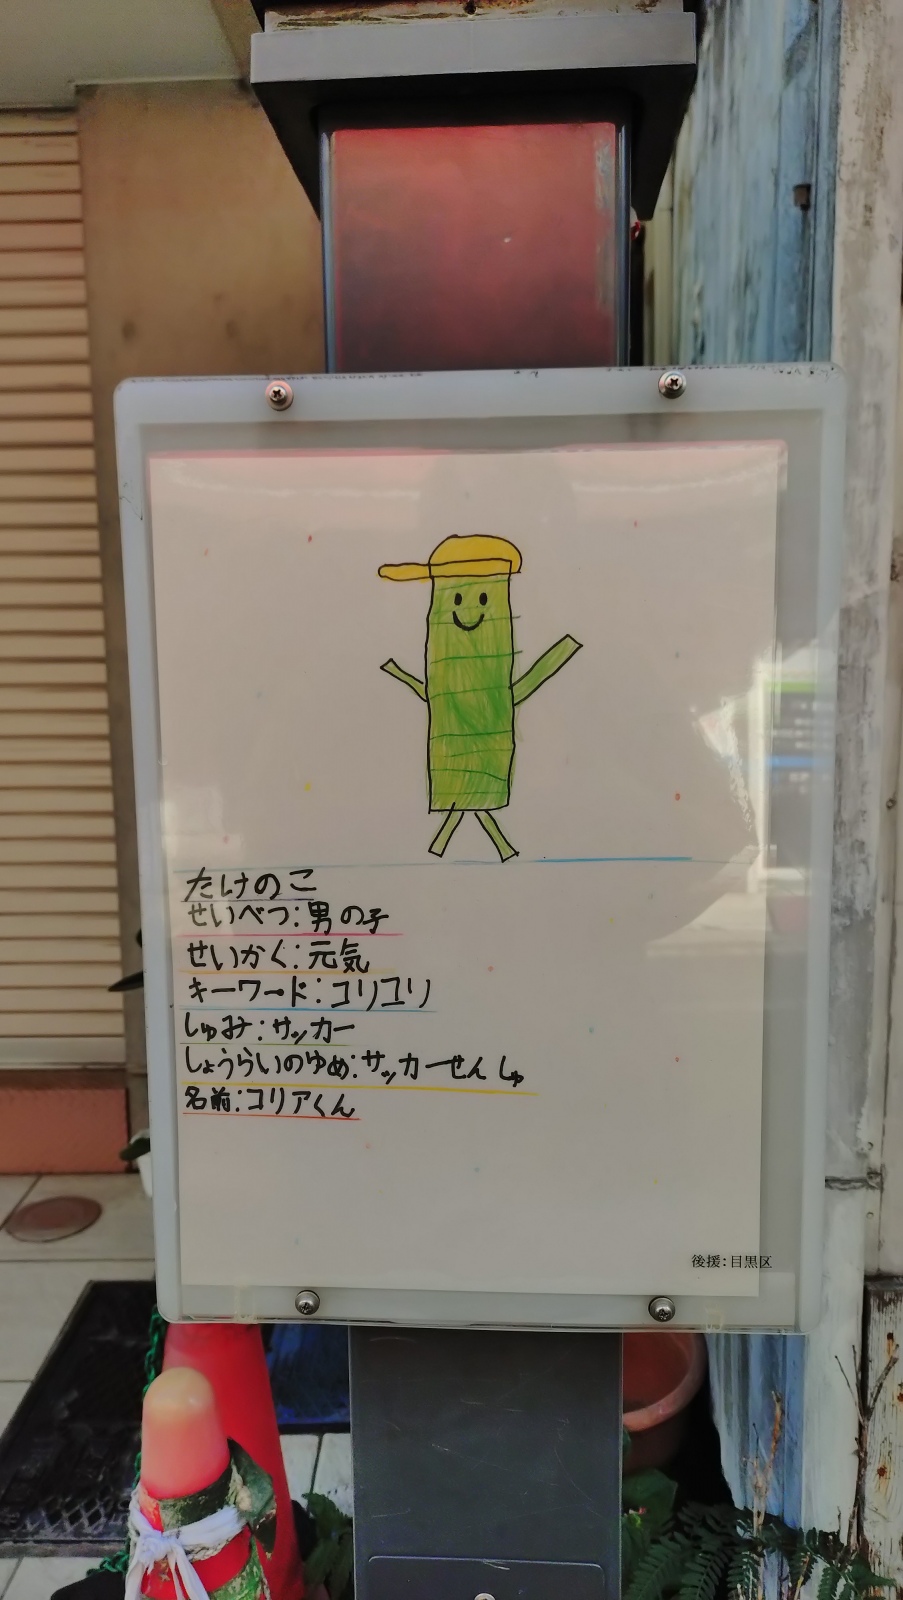 たけのこ
せいべつ:男の子
せいかく:元気
キーワード:コリコリ
しゅみ:サッカー
しょうらいのゆめ:サッカーせんしゅ
名前:コリアくん
後援:目黒区